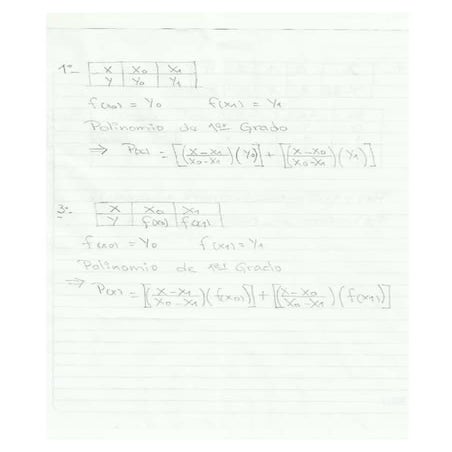 1º- | X | X₀ | X₁ |
| Y | Y₀ | Y₁ |
f(x₀) = Y₀ f(x₁) = Y₁
Polinomio de 1er Grado
⇒ P(x) = [(X - X₁ / X₀ - X₁)(Y₀)] + [(X - X₀ / X₀ - X₁)(Y₁)]
3º- | X | X₀ | X₁ |
| Y | f(x₀) | f(x₁) |
f(x₀) = Y₀ f(x₁) = Y₁
Polinomio de 1er Grado
⇒ P(x) = [(X - X₁ / X₀ - X₁)(f(x₀))] + [(X - X₀ / X₀ - X₁)(f(x₁))]